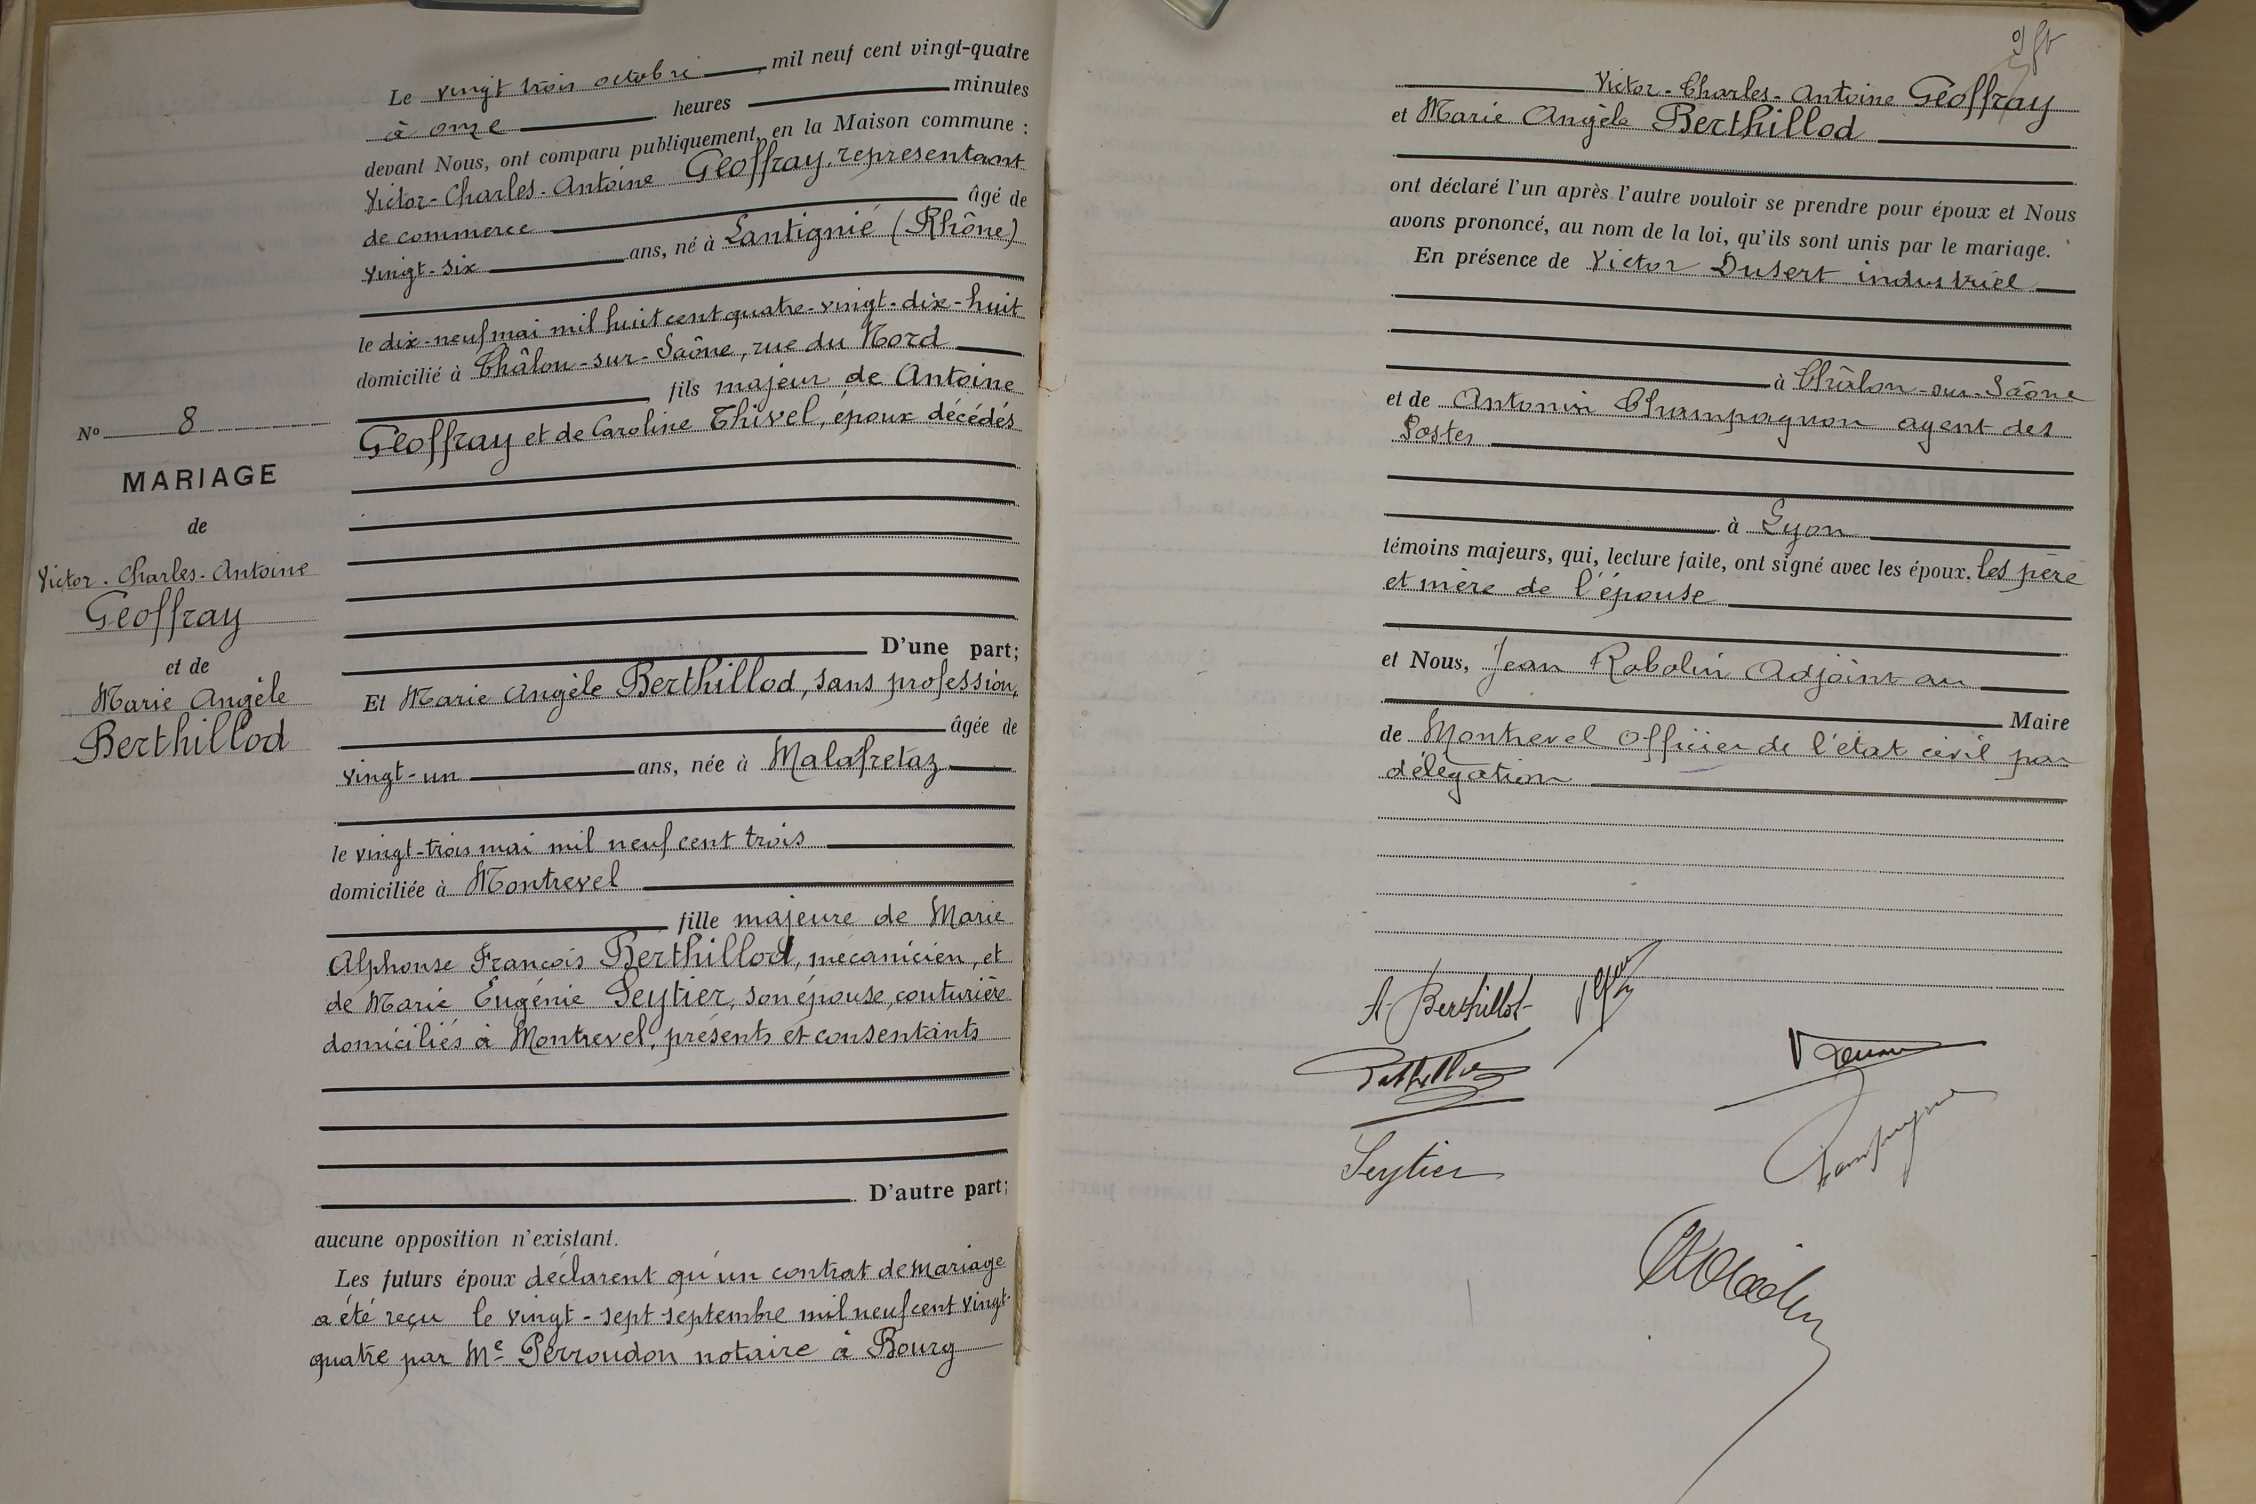 N° 8
MARIAGE
de
Victor-Charles-Antoine
Geoffray
et de
Marie Angèle
Berthillod
Le vingt trois octobre, mil neuf cent vingt-quatre
à onze heures minutes
devant Nous, ont comparu publiquement, en la Maison commune :
Victor-Charles-Antoine Geoffray, représentant
de commerce âgé de
vingt-six ans, né à Lantignié (Rhône)
le dix-neuf mai mil huit cent quatre-vingt-dix-huit
domicilié à Châlon-sur-Saône, rue du Nord
fils majeur de Antoine
Geoffray et de Caroline Thivel, époux décédés
D'une part;
Et Marie Angèle Berthillod, sans profession,
âgée de
vingt-un ans, née à Malafretaz
le vingt-trois mai mil neuf cent trois
domiciliée à Montrevel
fille majeure de Marie
Alphonse François Berthillod, mécanicien, et
de Marie Eugénie Seytier, son épouse, couturière
domiciliés à Montrevel, présents et consentants
D'autre part;
aucune opposition n'existant.
Les futurs époux déclarent qu'un contrat de mariage
a été reçu le vingt-sept septembre mil neuf cent vingt-
quatre par Me Perroudon notaire à Bourg
Victor-Charles-Antoine Geoffray
et Marie Angèle Berthillod
ont déclaré l'un après l'autre vouloir se prendre pour époux et Nous
avons prononcé, au nom de la loi, qu'ils sont unis par le mariage.
En présence de Victor Dusert industriel
à Châlon-sur-Saône
et de Antonin Champagnon agent des
Postes
à Lyon
témoins majeurs, qui, lecture faite, ont signé avec les époux, les père
et mère de l'épouse
et Nous, Jean Robolin Adjoint au
Maire
de Montrevel Officier de l'état civil par
délégation
A. Berthillot
Seytier